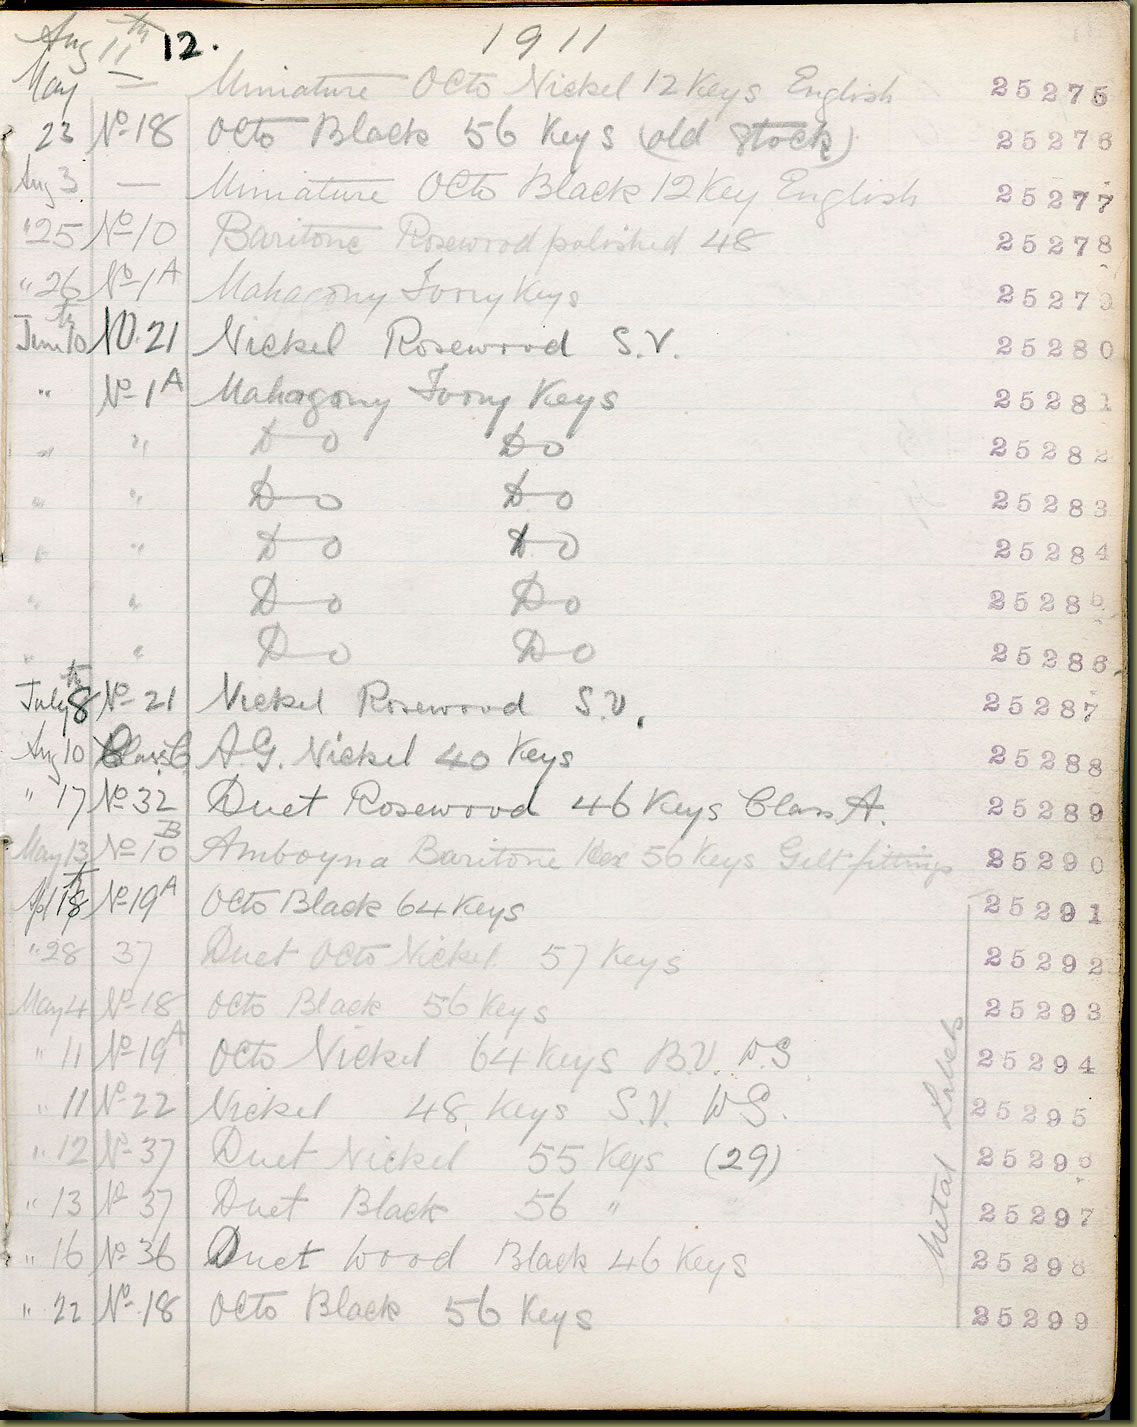 Aug 11th 12. 1911
May — Miniature Octo Nickel 12 Keys English 25275
23 No 18 Octo Black 56 Keys (old Stock) 25276
Aug 3 — Miniature Octo Black 12 Key English 25277
" 25 No 10 Baritone Rosewood polished 48 25278
" 26 No 1A Mahagony Ivory Keys 25279
June 10th No. 21 Nickel Rosewood S.V. 25280
" No 1A Mahagony Ivory Keys 25281
" " Do Do 25282
" " Do Do 25283
" " Do Do 25284
" " Do Do 25285
" " Do Do 25286
July 8th No 21 Nickel Rosewood S.V. 25287
Aug 10 Class C A.G. Nickel 40 Keys 25288
" 17 No 32 Duet Rosewood 46 Keys Class A. 25289
May 13 No 10B Amboyna Baritone Hex 56 Keys Gilt fittings 25290
Apl 18th No 19A Octo Black 64 Keys 25291
" 28 37 Duet Octo Nickel 57 Keys 25292
May 4 No 18 Octo Black 56 Keys 25293
" 11 No 19A Octo Nickel 64 Keys B.V. W.G 25294
" 11 No 22 Nickel 48 Keys S.V. W G. 25295
" 12 No 37 Duet Nickel 55 Keys (29) 25296
" 13 No 37 Duet Black 56 " 25297
" 16 No 36 Duet Wood Black 46 Keys 25298
" 22 No 18 Octo Black 56 Keys 25299
Metal Labels